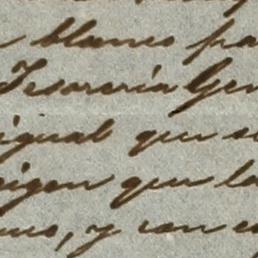 blanco pa
Tesorería Gen
igual que se
exigen que la
y con